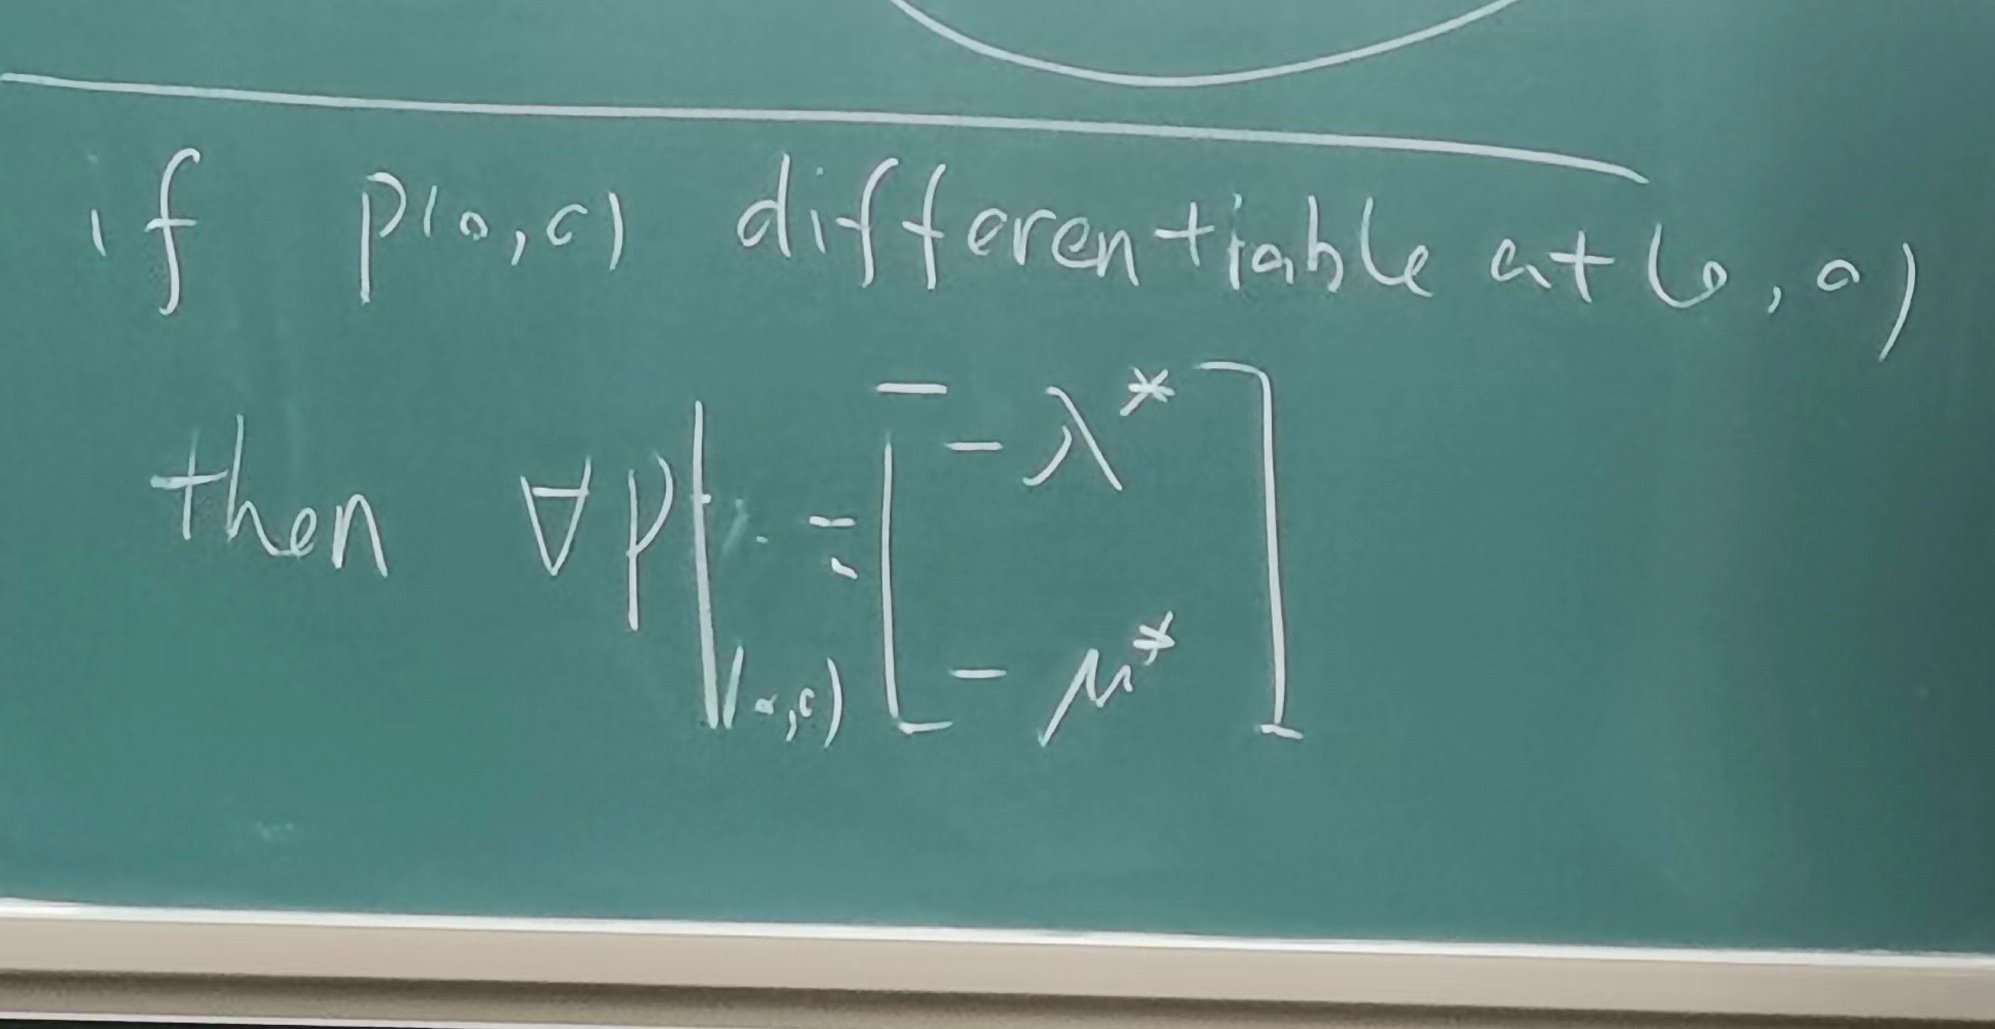 if p(0,0) differentiable at (0,0)
then ∇p|(0,0) = [ -λ* ; -μ* ]